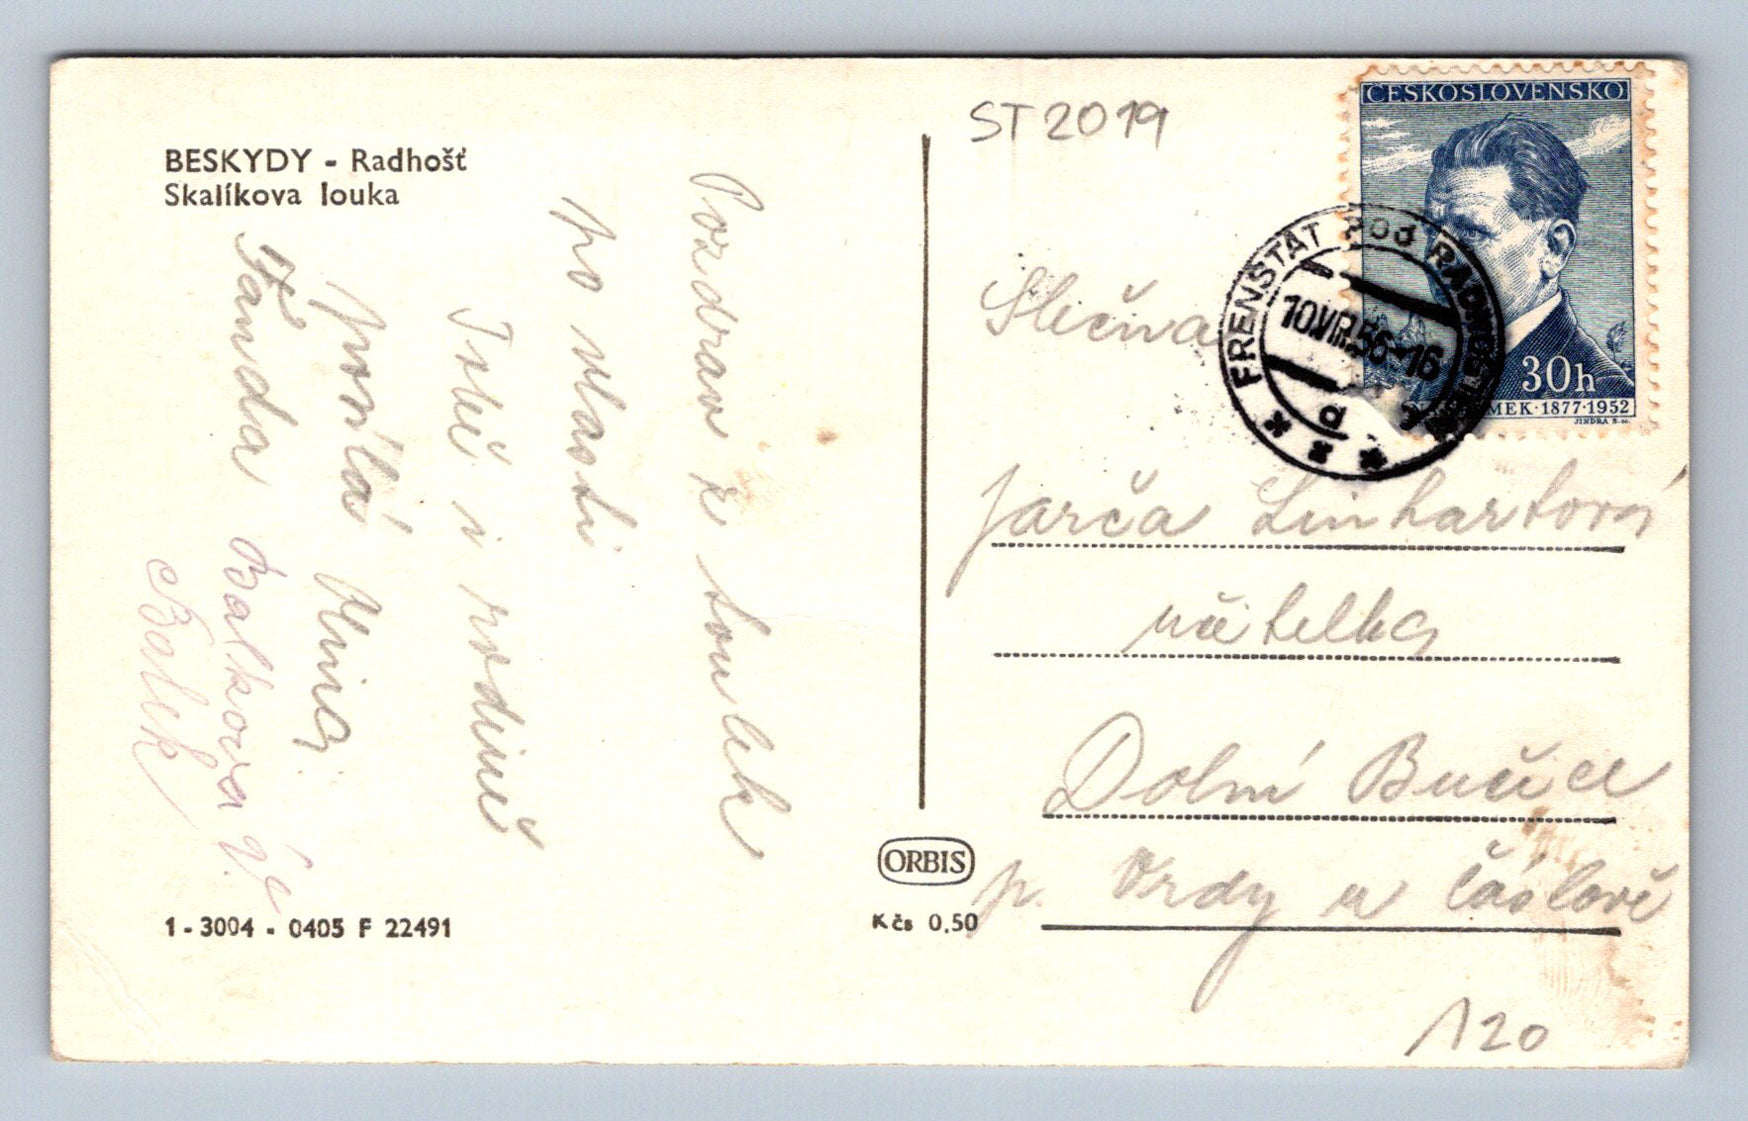 BESKYDY - Radhošť
Skalíkova louka
Pozdrav z toulek
po vlasti
Tobě i rodině
posílá
Fanda Balkova
Bolek
1 - 3004 - 0405 F 22491
ORBIS
Kčs 0,50
ST 2019
ČESKOSLOVENSKO
30h
MEK · 1877-1952
JINDRA
FRENŠTÁT pod RADHOŠTĚM
10.VIII.56-16
a
Slečna
Jarča Linhartová
učitelka
Dolní Bučice
p. Vrdy u Čáslavě
120